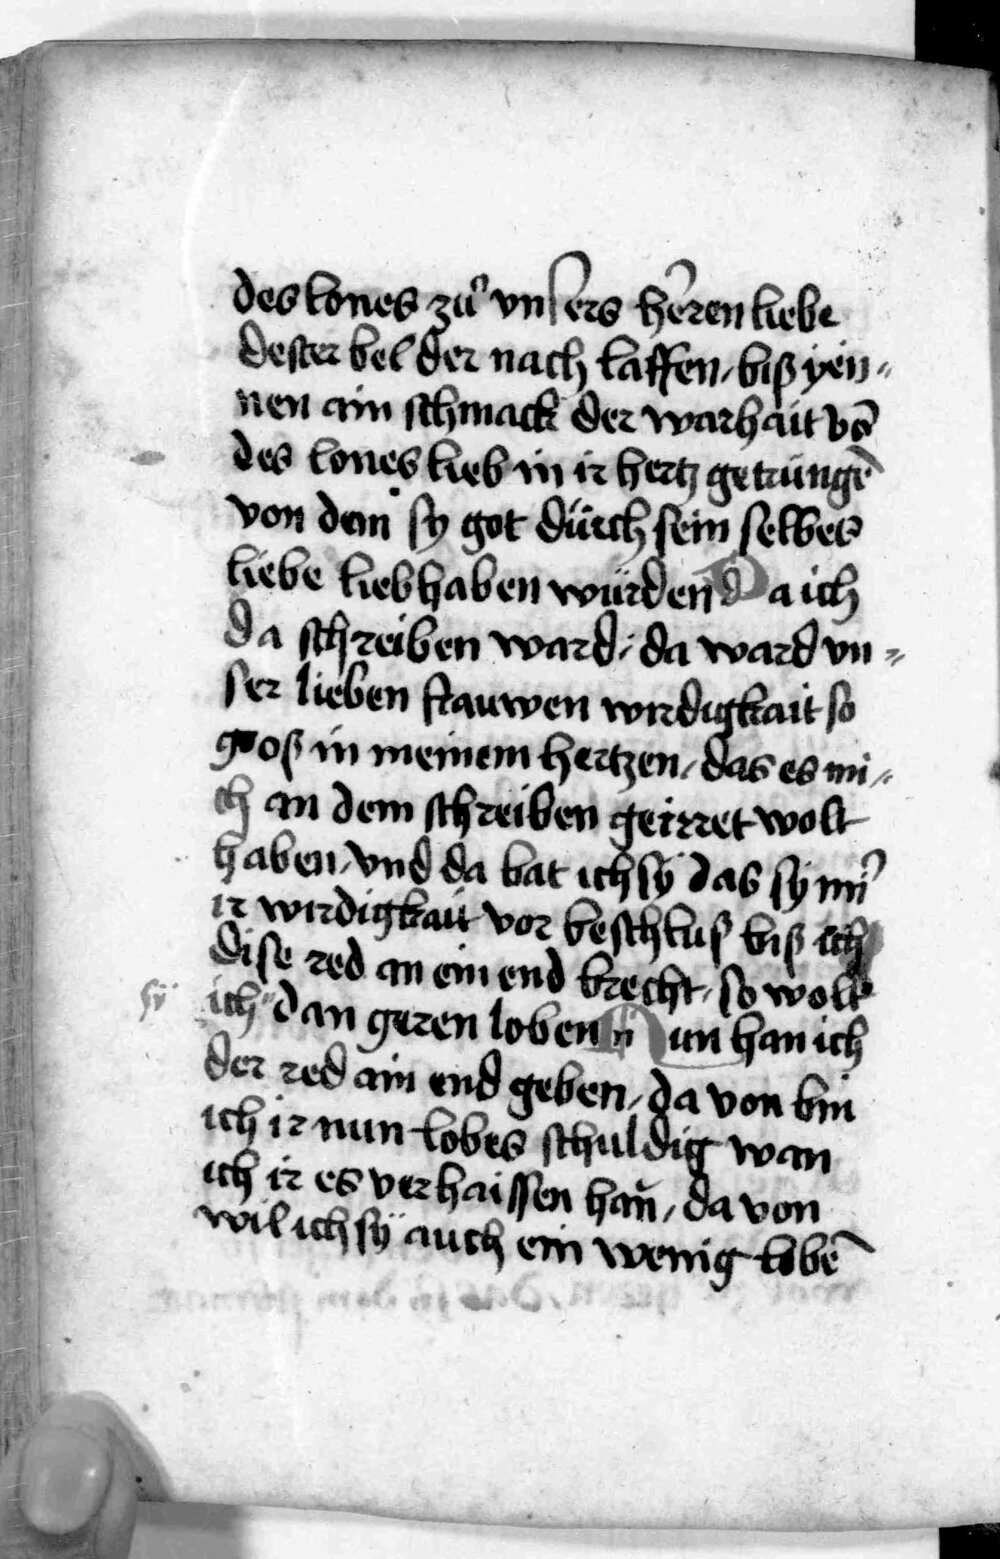 des lones zuͦ vnsers herren liebe
dester bel der nach laffen / biß yen⸗
nen ain schmack der warhait vō
des lones lieb in ir hertz getrüngē
von dem sy got dürch sein selbes
liebe lieb haben würden Da ich
da schreiben ward / da ward vn⸗
ser lieben frauwen wirdigkait so
groß in meinem hertzen / das es mi⸗
ch an dem schreiben geirret wolt
haben / vnd da bat ich sÿ das sy mir
ir wirdigkait vor beschluß biß ich
dise red an ein end brecht / so wolt
sÿ ich " dan geren loben Nun han ich
der red ain end geben / da von bin
ich ir nun lobes schuldig wan
ich ir es verhaissen han / da von
wil ich sÿ auch ein wenig lobē